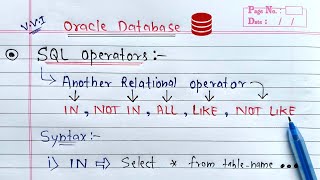 V.V.I
Oracle Database
Page No.:
Date : / /
SQL Operators:-
Another Relational operator
IN, NOT IN, ALL, LIKE, NOT LIKE
Syntax:-
i) IN ⇒ Select * from table-name ...